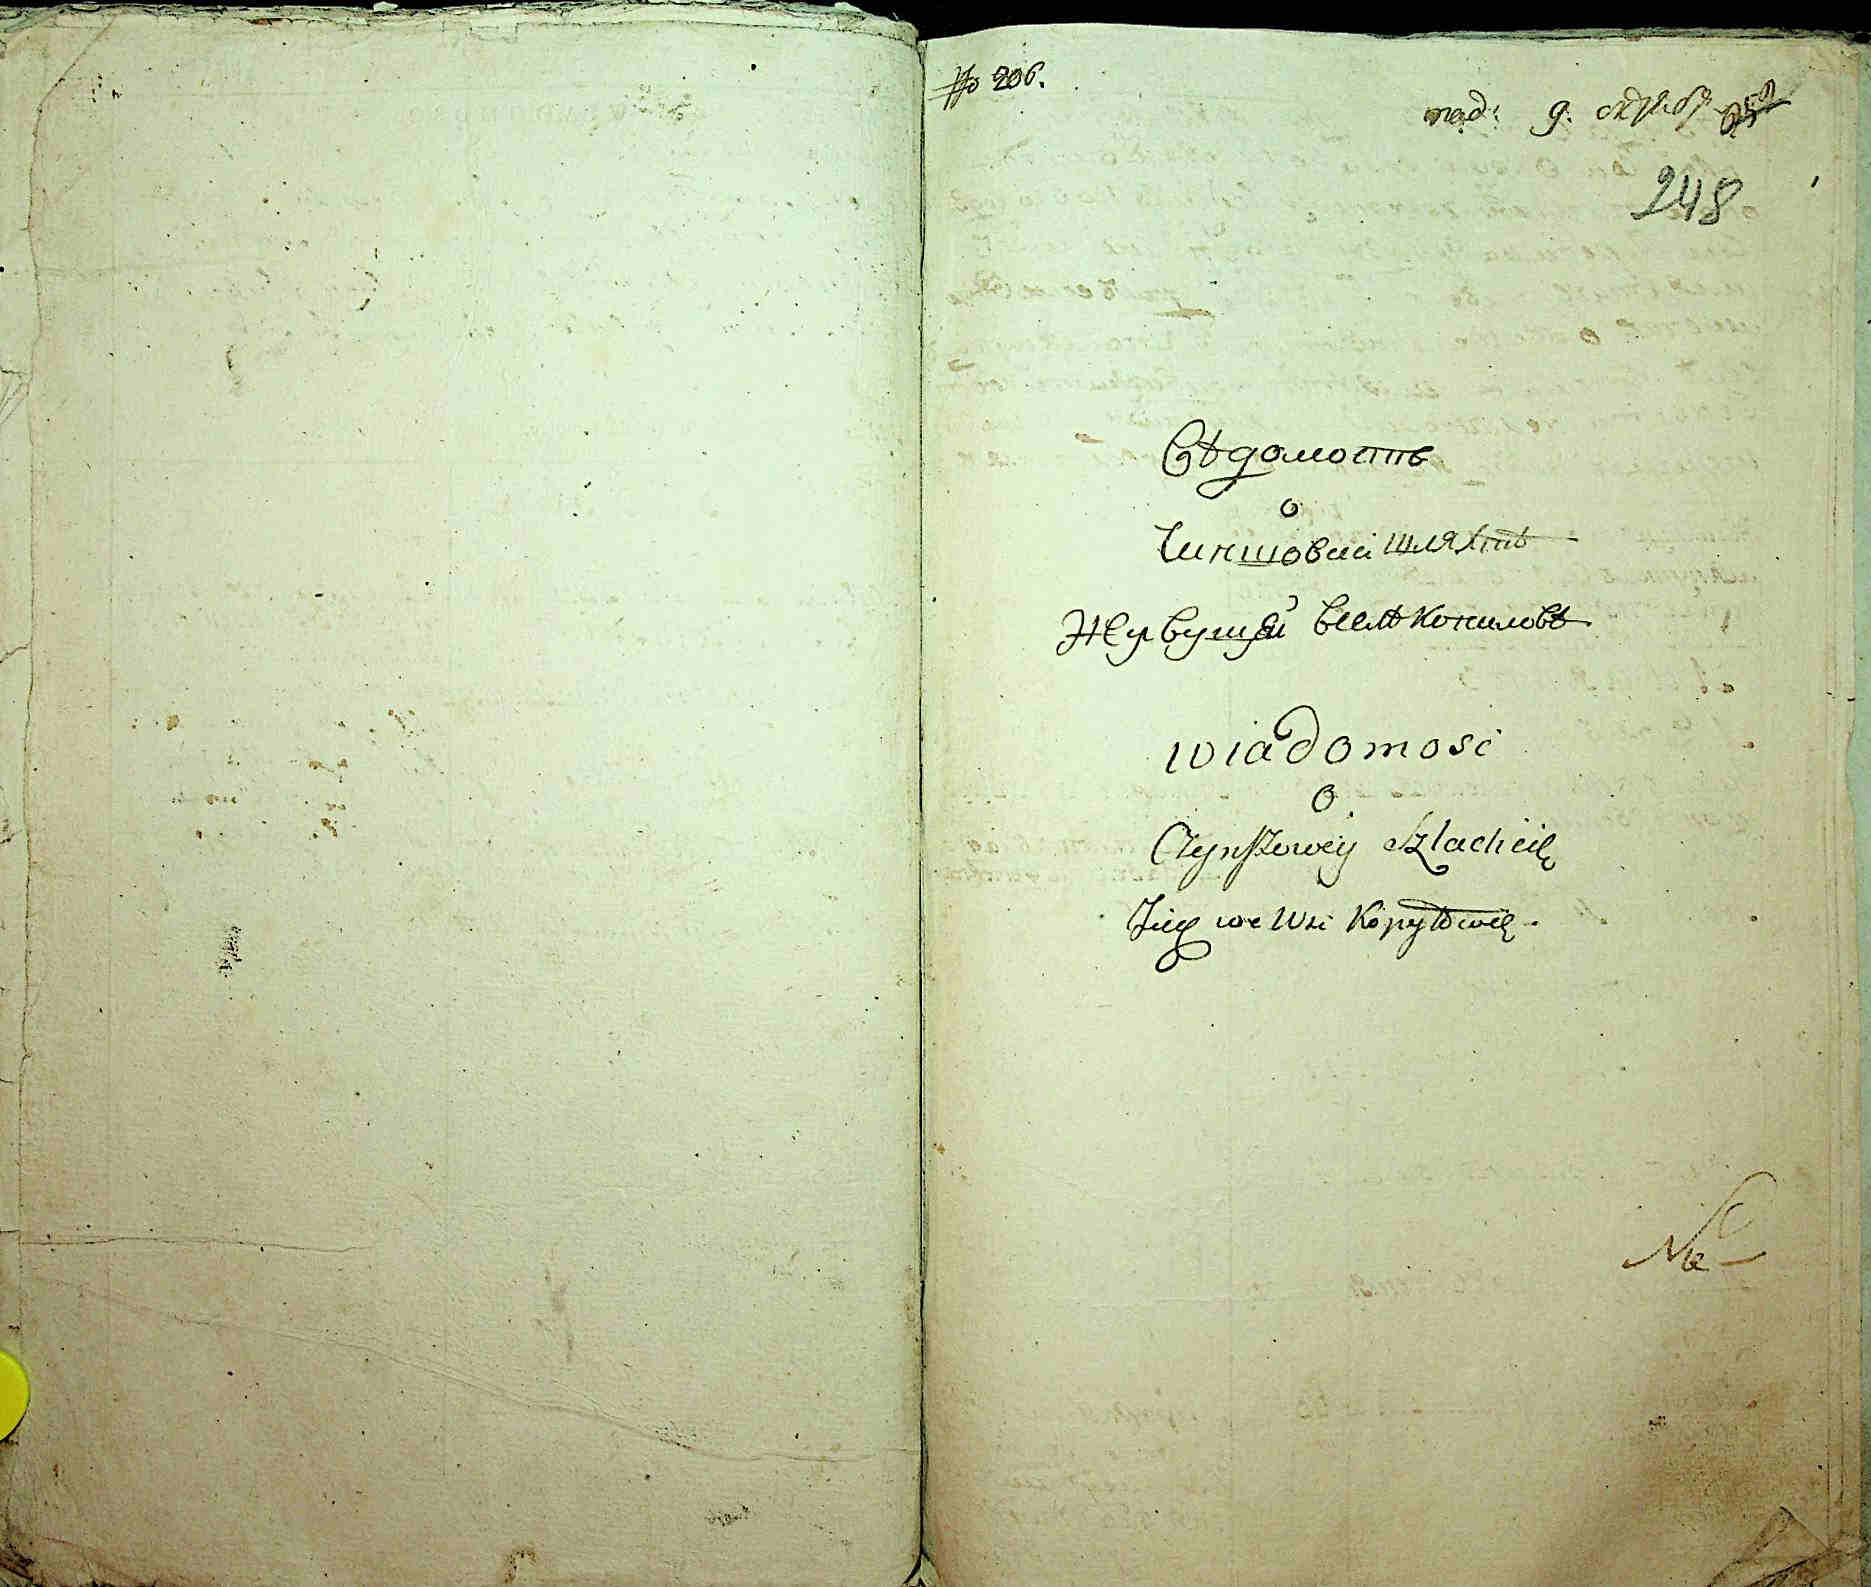 No 206.
под: 9. октября
248
Вѣдомость
о
Чиншовой шляхтѣ
Живущей Вселѣ Копиловѣ
wiadomosc
O
Czynszowey Szlachcie
we Wsi Kopyłowie.